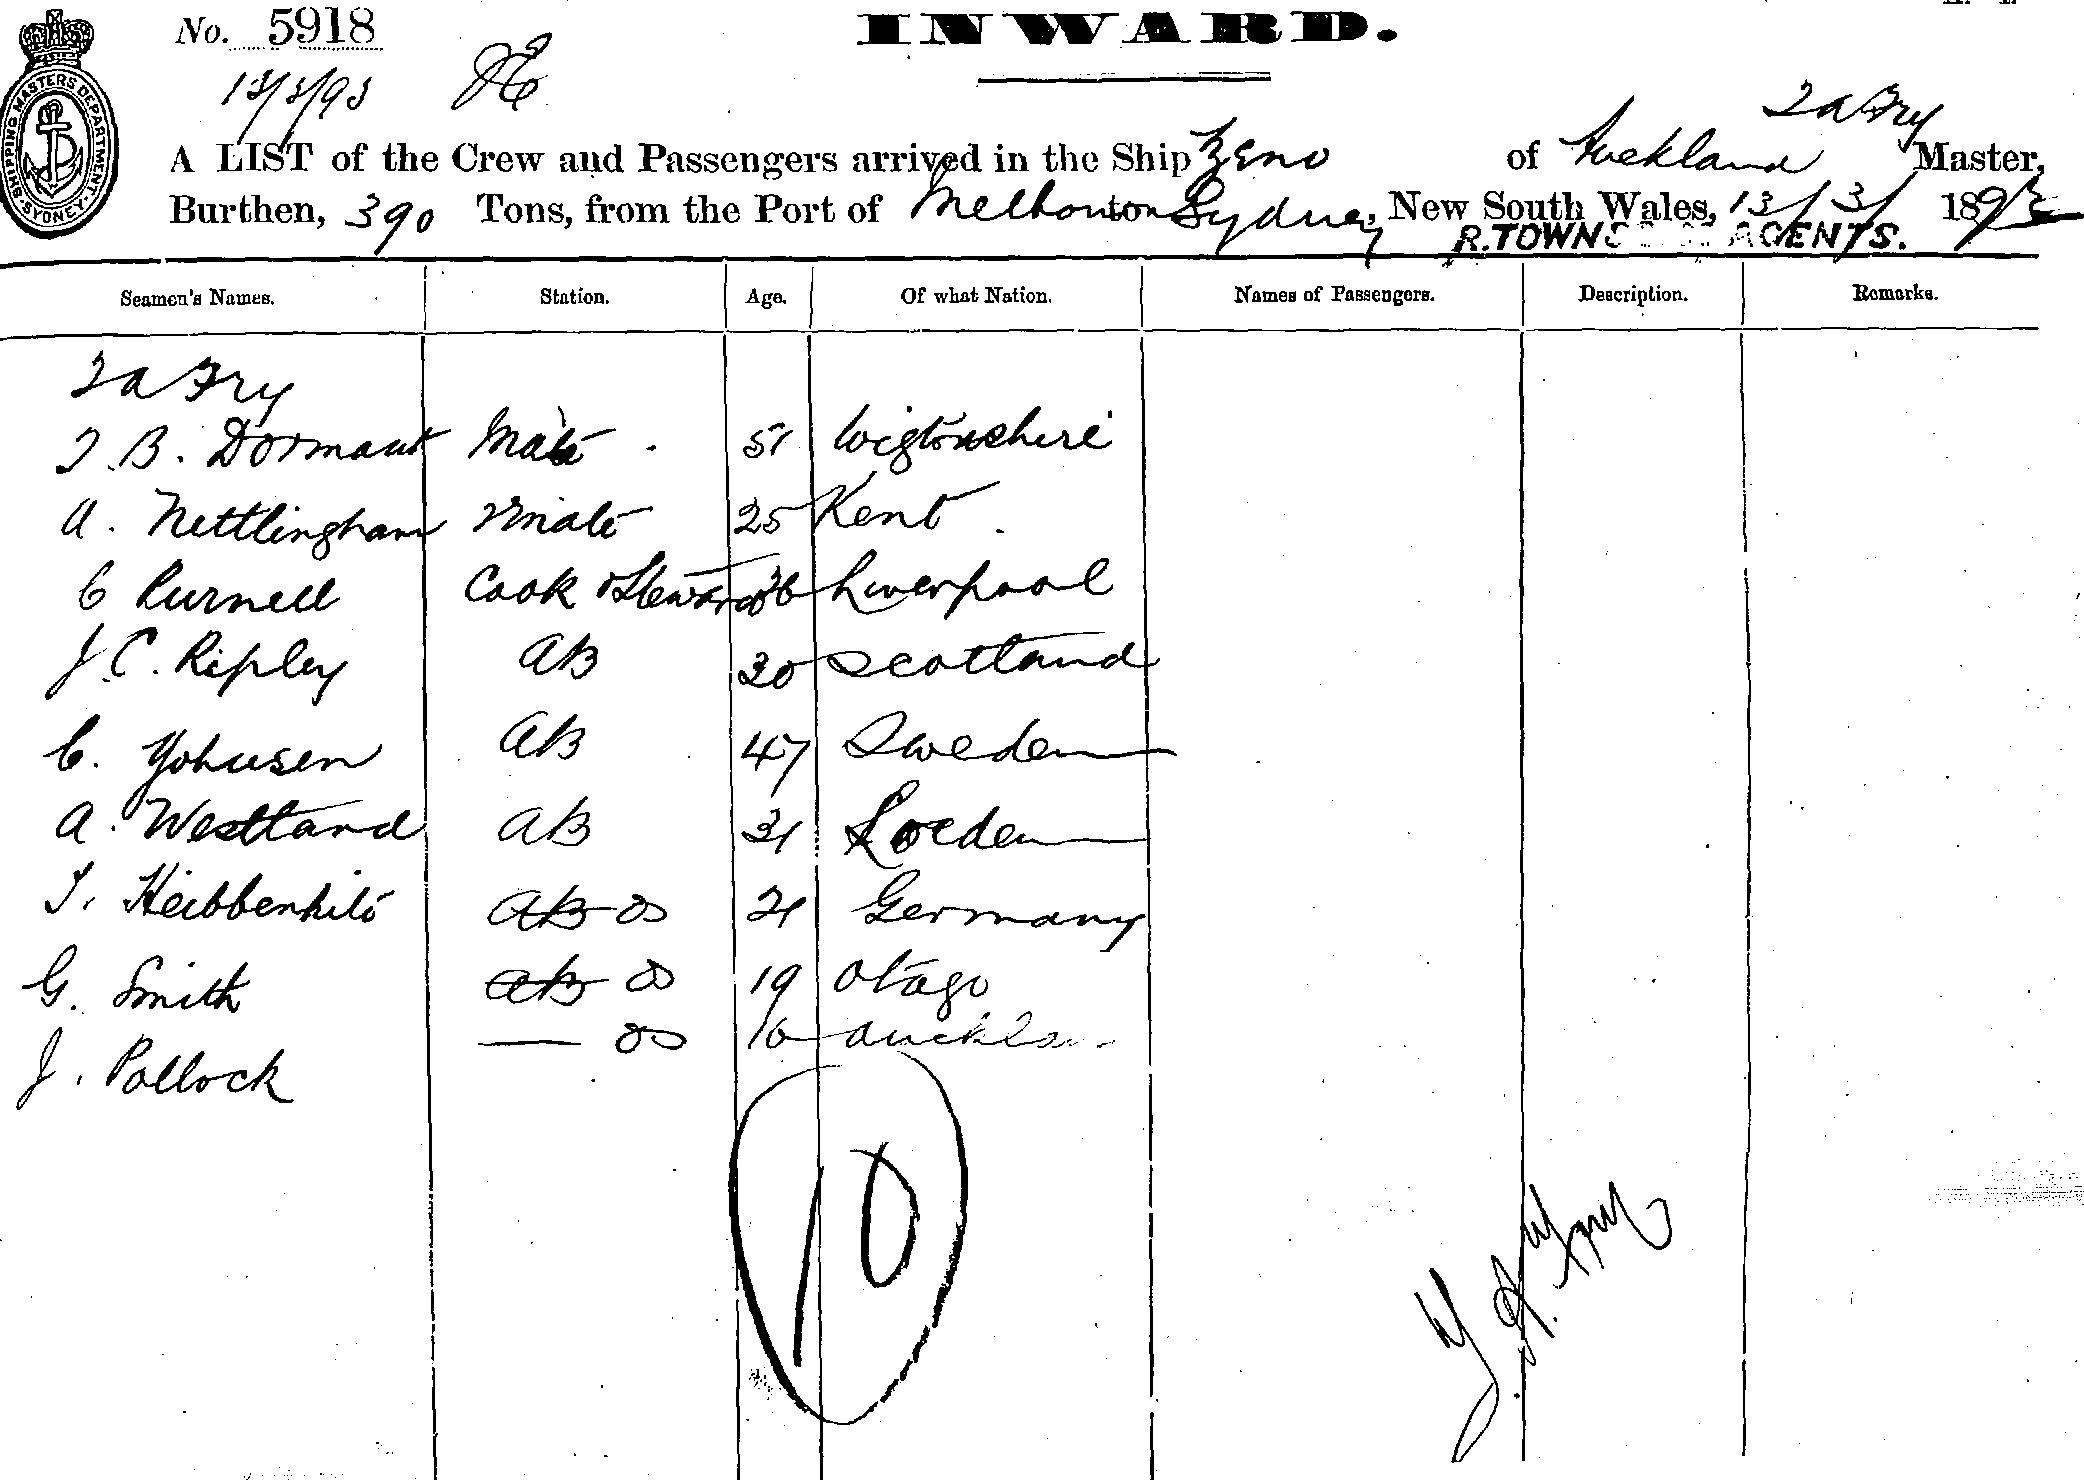 No. 5918
INWARD.
13/3/93
SHIPPING MASTERS DEPARTMENT SYDNEY
A LIST of the Crew and Passengers arrived in the Ship Zeno of Auckland Fry Master,
Burthen, 390 Tons, from the Port of to Sydney, New South Wales, 13/3/ 1893
R. TOWNS AGENTS.
Seamen's Names. Station. Age. Of what Nation. Names of Passengers. Description. Remarks.
Fry
B. Dormant Mate 51 Wigtonshire
A. Nettlingham 2 mate 25 Kent
C Purnell Cook & Steward 36 Liverpool
J. C. Ripley AB 30 Scotland
C. Yohnsen AB 47 Sweden
A. Westland AB 31
AB OS 21 Germany
G. Smith AB OS 19 Otago
J. Pollock — OS 16
10